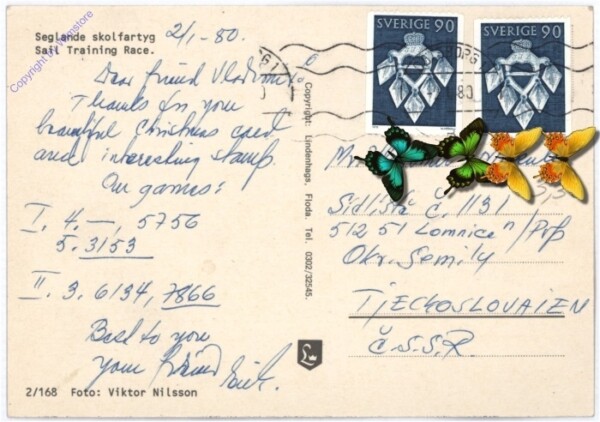 Seglande skolfartyg
Sail Training Race.
2/1-80.
Dear friend Vladimir
Thanks for your
beautiful Christmas card
and interesting stamp
Our games:
I. 4. —, 5756
5. 3153
II. 3. 6134, 7866
Best to you
your friend
2/168 Foto: Viktor Nilsson
Copyright: Lindenhags, Floda. Tel. 0302/32545.
SVERIGE 90
SVERIGE 90
80
Sídliště č. 1131
512 51 Lomnice n/Pop
Okr. Semily
TJECKOSLOVAIEN
Č.S.S.R.